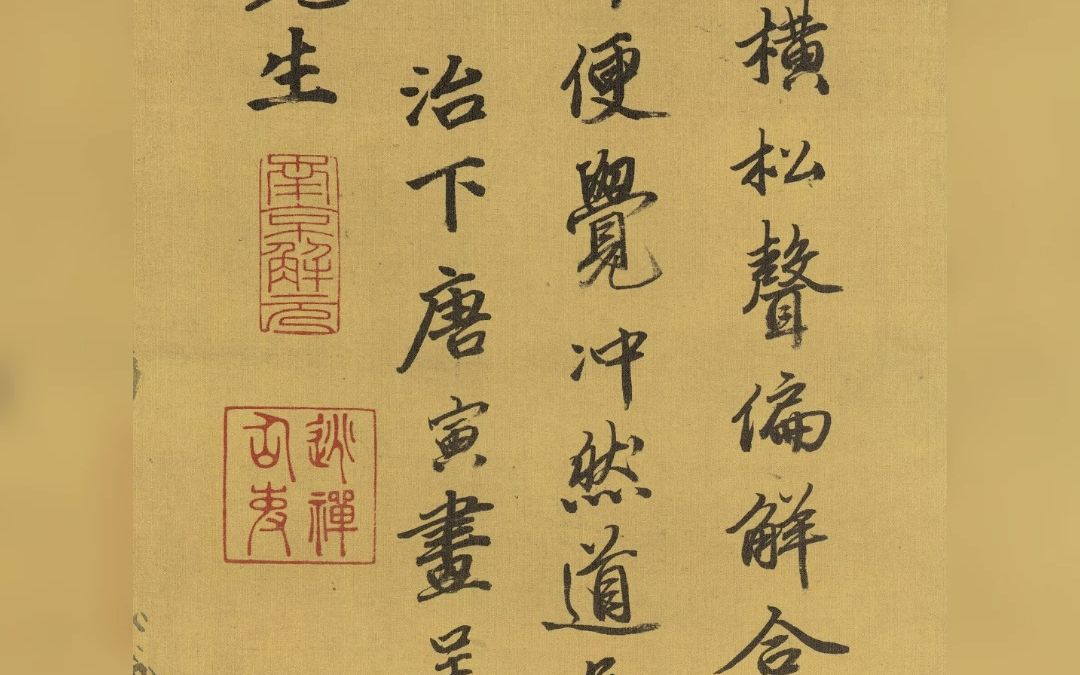 橫松聲偏解合
便覺冲然道
治下唐寅畫呈
生
南京解元
逃禪
仙吏